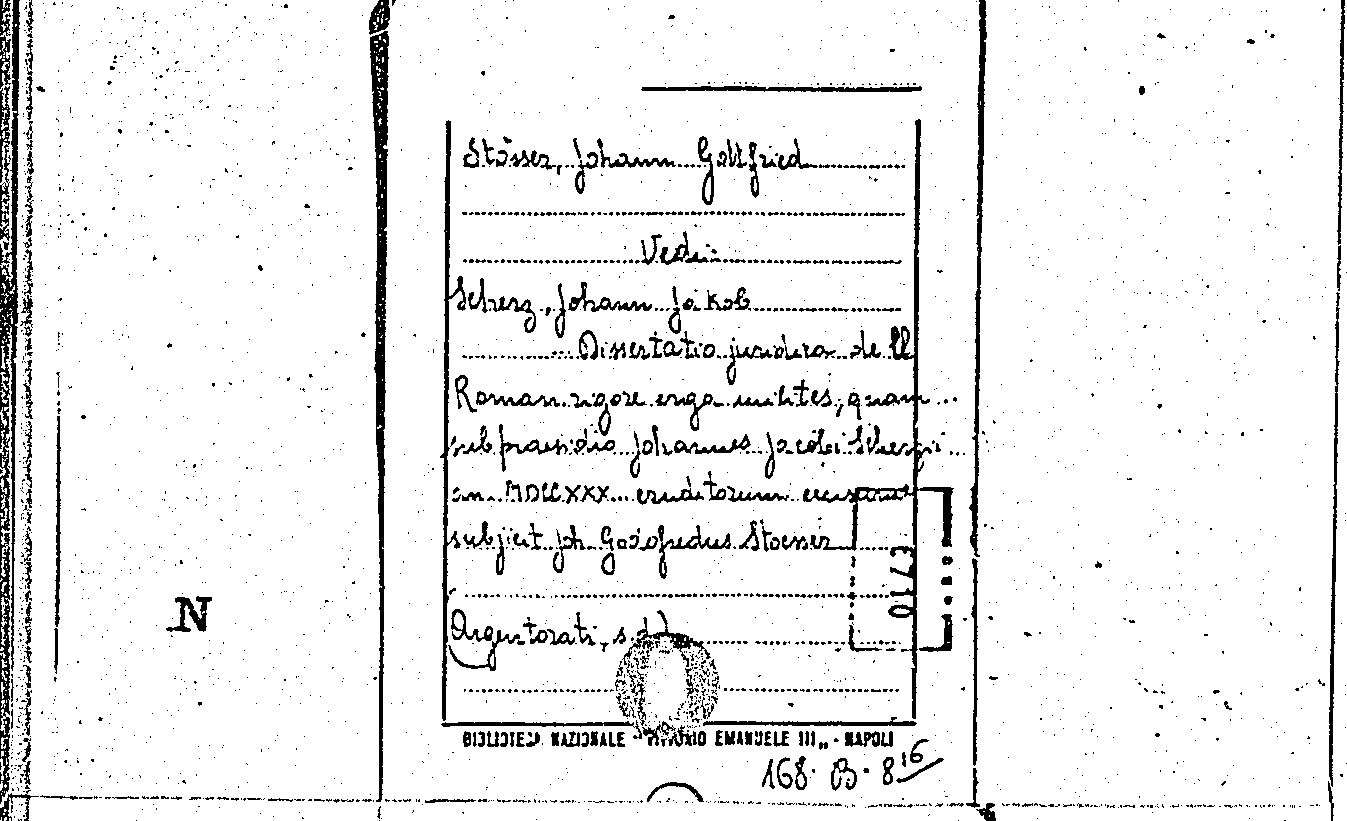 Stösser, Johann Gottfried
Vedi:
Scherz, Johann Jakob
Dissertatio juridica de ll
Roman. rigore erga milites, quam...
sub praesidio Johannes Jacobi Scherzii...
an. MDCCXXX... eruditorum
subjicit Joh. Godofredus Stoesser
(Argentorati, s.d.)
N
BIBLIOTECA NAZIONALE - "VITTORIO EMANUELE III" - NAPOLI
168. B. 8 16